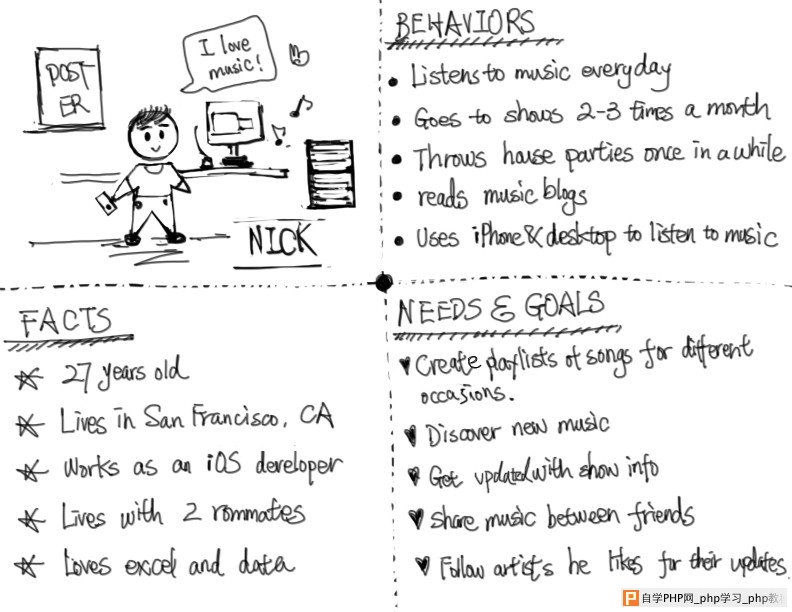 POST
ER
I love
music!
NICK
BEHAVIORS
Listens to music everyday
Goes to shows 2-3 times a month
Throws house parties once in a while
reads music blogs
Uses iPhone & desktop to listen to music
FACTS
27 years old
Lives in San Francisco, CA
Works as an iOS developer
Lives with 2 rommates
Loves excel and data
NEEDS & GOALS
Create playlists of songs for different
occasions.
Discover new music
Get updated with show info
share music between friends
Follow artists he likes for their updates.
自学PHP网_php学习_php教